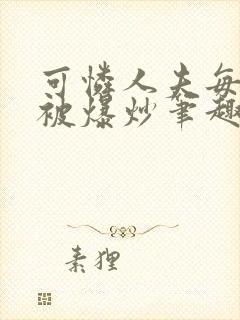 可怜人夫每
被爆炒笔趣
素狸